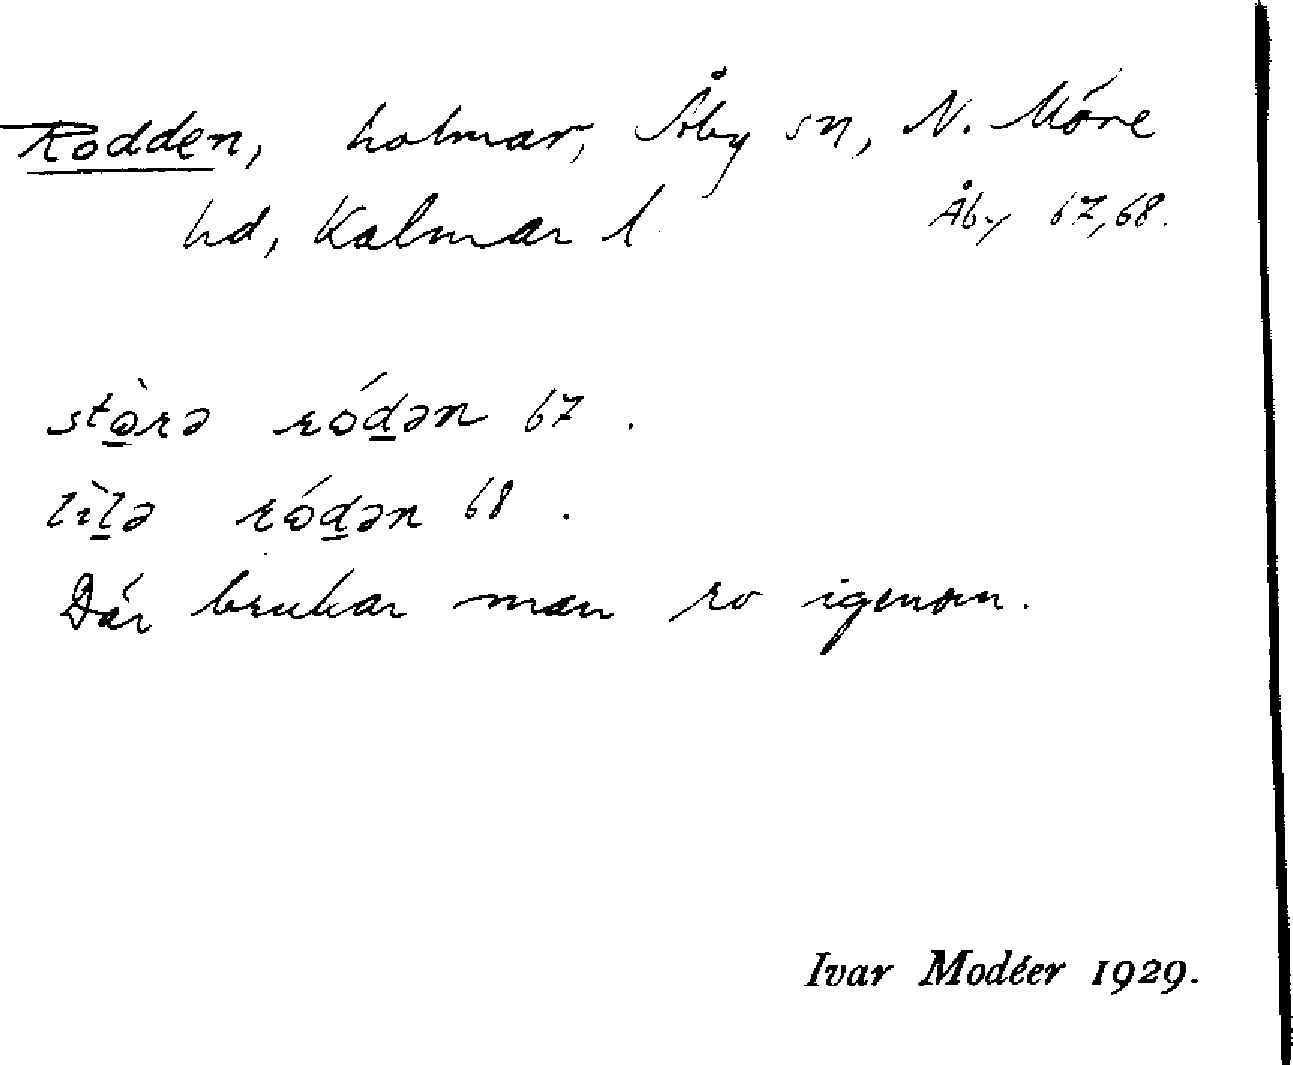 Rodden, holmar, Åby sn, N. Möre
hd, Kalmar l. Åby 67, 68.
stò̱rə ɾóḏən 67.
lìḻə ɾóḏən 68.
Där brukar man ro igenom.
Ivar Modéer 1929.